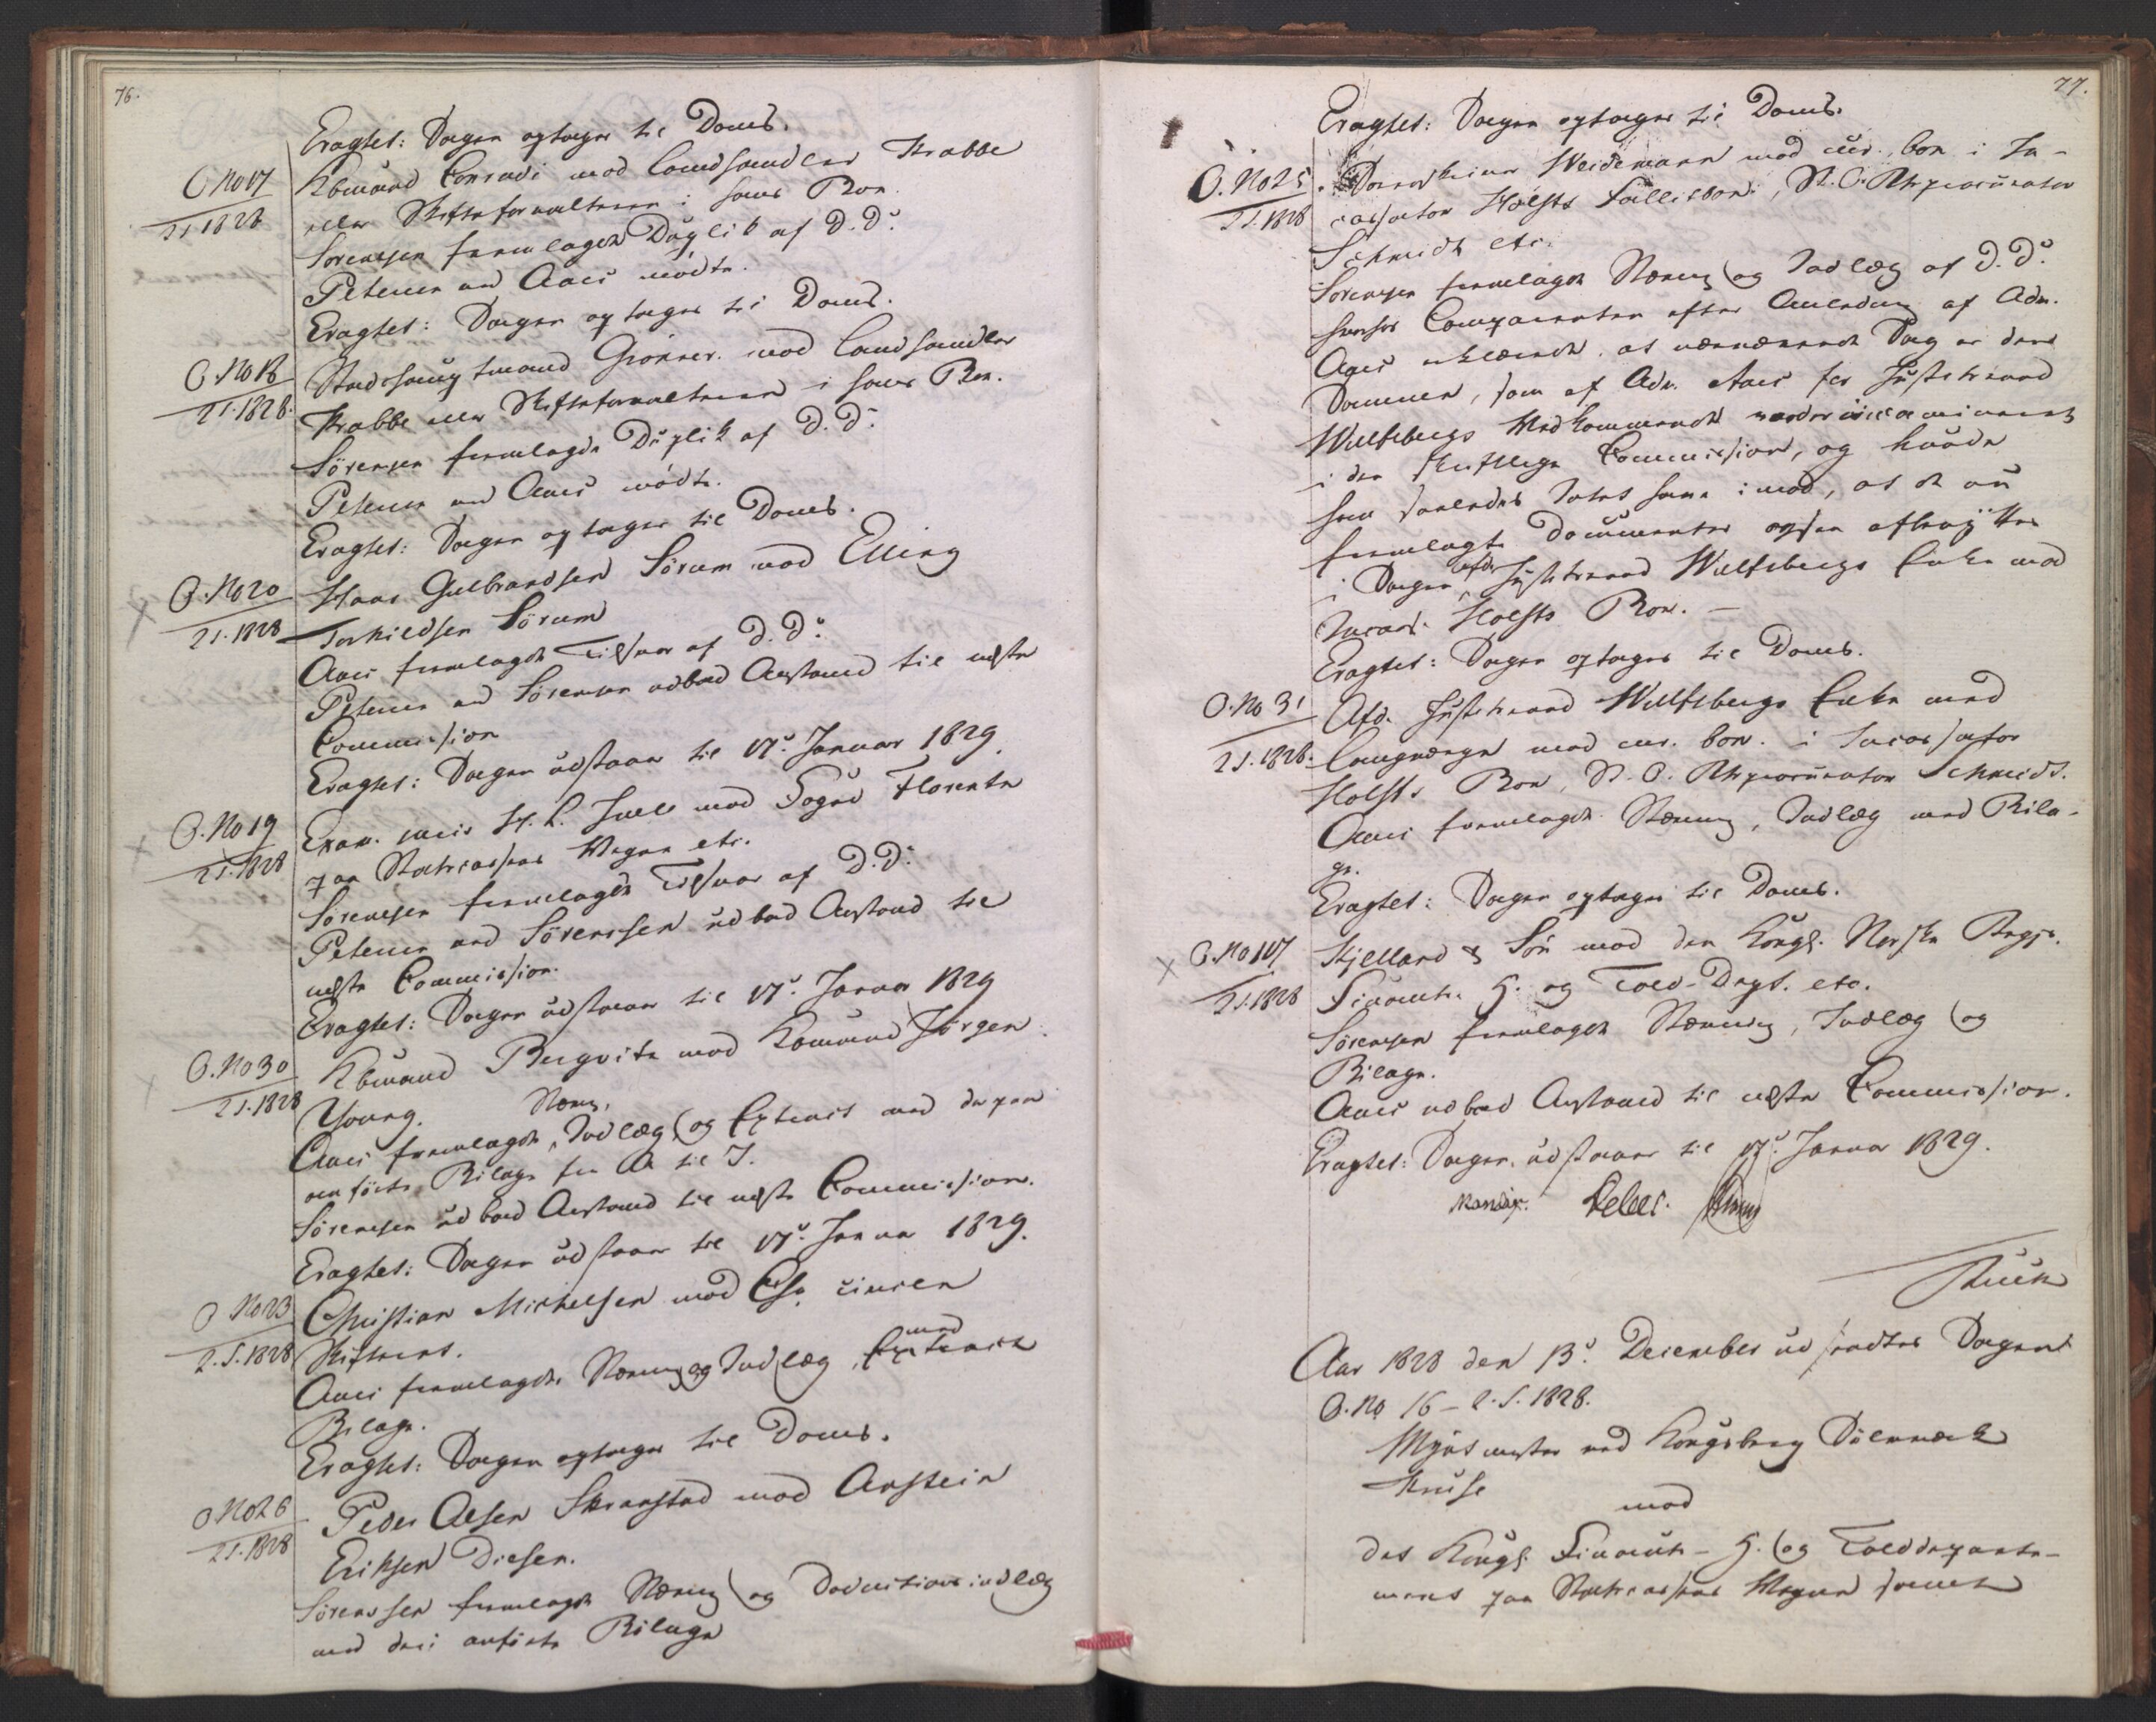 76.
Eragtet: Sagen optages til Doms.
O No 17
2 S. 1828
Kbmand Conradi mod Landhandler Krabbe
eller Skifteforvalteren i hans Boe.
Sorensen fremlagde Duplik af D. D.
Petersen end Aars mødte.
Eragtet: Sagen optages til Doms.
O. No 18
2 S. 1828.
Stadshauptmand Grönner mod Landhandler
Krabbe eller Skifteforvalteren i hans Boe.
Sörensen fremlagde Duplik af D. D.
Petersen
Eragtet: Sagen optages til Doms.
O. No 20
2 S. 1828
Hans Gulbrandsen Sörum mod Elling
Torkildsen Sörum
fremlagde Tilsvar af D. D.
Petersen Sörensen udbad Anstand til næste
Commission
Eragtet: Sagen udstaar til 17de Januar 1829.
O. No 19
2 S. 1828
Exam. juris H. L. Juell mod Foged Florentz
paa Statscassens Vegne etc.
Sörensen fremlagde Tilsvar af D. D.
Petersen Sörenssen udbad Anstand til
næste Commission.
Eragtet: Sagen udstaar til 17de Januar 1829
O. No 30
2 S. 1828
Kbmand Bergvitz mod Kbmand Jörgen
Young.
Stævn.
fremlagde, Indlæg og Extract med derpaa
anførte Bilage fra A til I.
Sörensen udbad Anstand til næste Commission.
Eragtet: Sagen udstaar til 17de Januar 1829.
O No 23
2. S. 1828
Christian Michelsen mod
Skifteret.
fremlagde Stævning og Indlæg, med Extract
Bilage.
Eragtet: Sagen optages til Doms.
O No 26
2 S. 1828
Peder Olsen Skranstad mod Anstein
Eriksen Diesen.
Sörenssen fremlagde Stævning og Deductionsindlæg
med deri anførte Bilage
77.
Eragtet: Sagen optages til Doms.
O. No 25.
2 S. 1828
Weidemann mod cur. bon. i In-
cassator Holsts Fallitboe, St. O. Rtsprocurator
Schmidt etc.
Sorensen fremlagde Stævning og Indlæg af D. D.
Comparenten efter Anledning af Adv.
erklærede, at nærværende Sag er den
Sammen, som af Adv. for Justitsraad
Wulfsbergs Vedkommende
i den skriftlige Commission, og havde
han saaledes Intet have imod, at de nu
fremlagte Documenter ogsaa afbenyttes
i Sagen afdø Justitsraad Wulfsbergs Enke mod
Incass. Holsts Boe. —
Eragtet: Sagen optages til Doms.
O. No 31
2 S. 1828.
Afd. Justitsraad Wulfsbergs Enke med
Laugværge mod cur. bon. i Incassator
Holsts Boe, St. O. Rtsprocurator Schmidt.
fremlagde Stævning, Indlæg med Bila-
ge.
Eragtet: Sagen optages til Doms.
O. No 107
2 S. 1828
Kjelland & Sön mod den Kongl. Norske Regjs.
Finants- H. og Told-Dept. etc.
Sörensen fremlagde Stævning, Indlæg og
Bilage.
udbad Anstand til næste Commission.
Eragtet: Sagen udstaar til 17de Januar 1829.
Debes.
Aar 1828 den 13de December udstædtes Sagen
O. No 16 - 2. S. 1828.
Myntmester ved Kongsberg Sölvværk
Kruse
mod
det Kongl. Finants- H. og Tolddeparte-
ment paa Statscassens Vegne samt